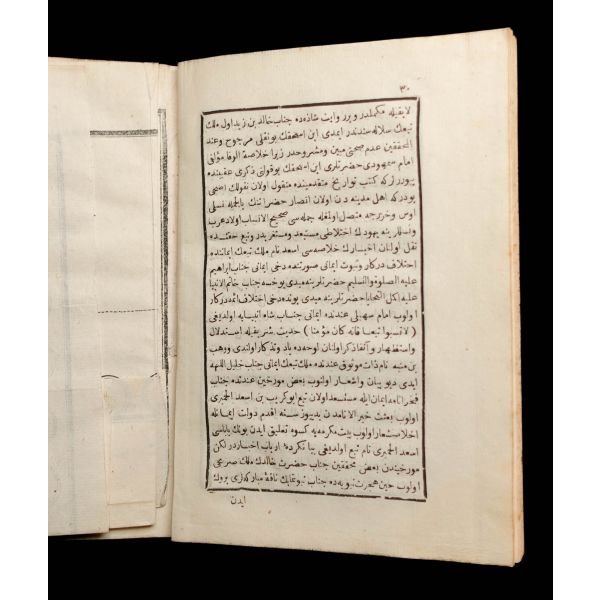 ٣٠
لايقيله مكملدر وبر روايت شاذه ده جناب خالد بن زيد اول ملك
تبعك سلاله سندندر ايمدى ابن اسحقك بو نقلى مرجوح وعند
المحققين عدم صحتى مبين ومشروحدر زيرا خلاصة الوفا مؤلفى
امام سمهودى حضرتلرى ابن اسحقك بو قولنى ذكرى عقيبنده
بيوررلركه كتب تواريخ متقدمينده منقول اولان نقولك اصحى
بودركه اهل مدينه دن اولان انصار حضراتنك بالجمله نسلى
اوس وخزرجه متصل اولمغله جمله سى صحيح الانساب اولاد عرب
ونسللرينه يهودك اختلاطى مستبعد ومستغربدر وتبع حقنده
نقل اولنان اخبارك خلاصه سى اسعد نام ملك تبعك ايماننده
اختلاف دركار وثبوت ايمانى صورتنده دخى ايمانى جناب ابراهيم
عليه الصلوة والتسليم حضرتلرينه ميدى يوخسه جناب خاتم الانبيا
عليه اكمل التحايا حضرتلرينه ميدى بونده دخى اختلاف ائمه دركار
اولوب امام سهيلى عندنده ايمانى جناب شاه انبيايه اولديغى
(لا تسبوا تبعا فانه كان مؤمنا) حديث شريفيله استدلال
واستظهار وآنفا ذكر اولنان لوحه ده ياد وتذكار اولندى ووهب
بن منبه نام ذات موثوق عندنده ملك تبعك ايمانى جناب خليل اللهه
ايدى ديو بيان واشعار اولنوب بعض مورخين عندنده جناب
فخر انامه ايمان ايله مستسعد اولان تبع ابو كريب بن اسعد الحميرى
اولوب بعثت خير الانامدن يديوز سنه اقدم دولت ايمانله
اخلاصشعار اولوب بيت مكرمه يه كسوه تعليق ايدن بونك باباسى
اسعد الحميرى نام تبع اولديغى بيانكرده ارباب اخباردر لكن
مورخيندن بعض محققين جناب حضرت خالدك ملك
اولوب حين هجرت نبويه ده جناب نبوتمآبك ناقه مباركه لرى بروك
ايدن